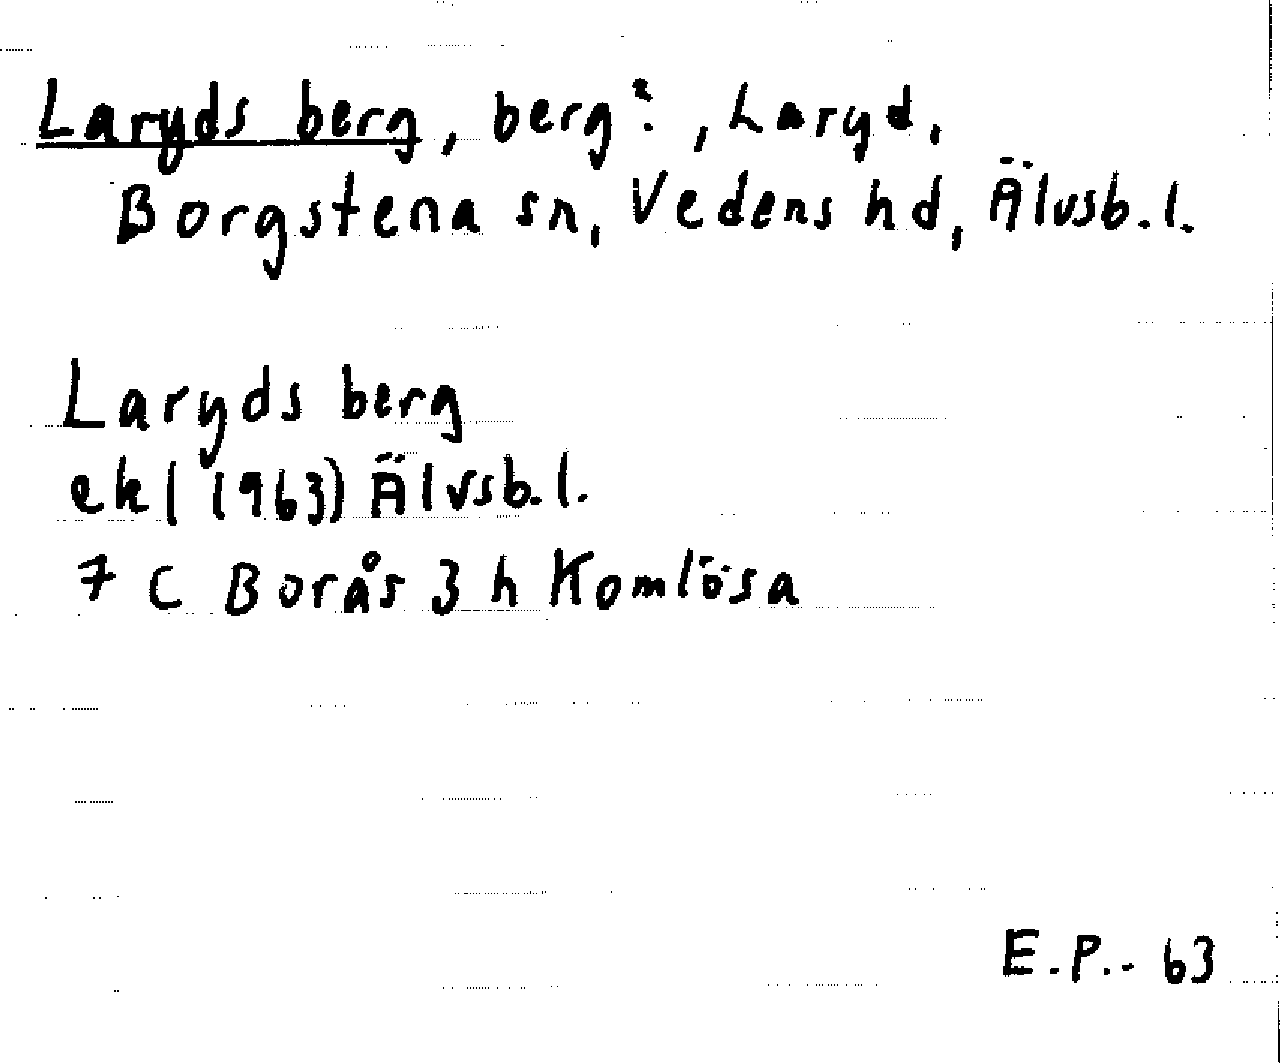 Laryds berg, berg?, Laryd,
Borgstena sn, Vedens hd, Älvsb.l.
Laryds berg
ek (1963) Älvsb.l.
7 C Borås 3 h Komlösa
E.P.- 63